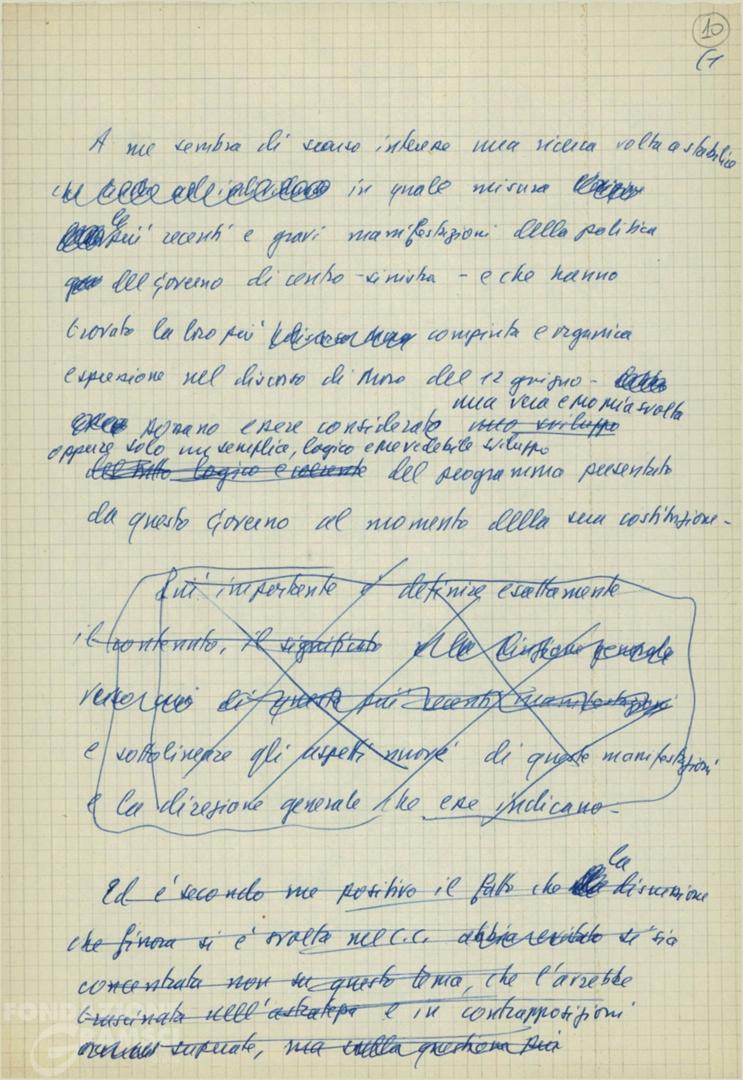 10
A me sembra di scarso interesse una ricerca volta a stabilire
in quale misura
le più recenti e gravi manifestazioni della politica
del Governo di centro-sinistra - e che hanno
trovato la loro più compiuta e organica
espressione nel discorso di Moro del 12 giugno -
una vera e propria svolta
possano essere considerate uno sviluppo
oppure solo un semplice, logico e prevedibile sviluppo
del tutto logico e coerente del programma presentato
da questo Governo al momento della sua costituzione -
Più importante è definire esattamente
il contenuto, il significato e la direzione generale
di queste più recenti manifestazioni
e sottolineare gli aspetti nuovi di queste manifestazioni
e la direzione generale che esse indicano -
la
Ed è secondo me positivo il fatto che discussione
che finora si è svolta nel C.C. abbia evitato si sia
concentrata non su questo tema, che l'avrebbe
trascinata nell'astratto e in contrapposizioni
superate, ma sulla questione più
FOND